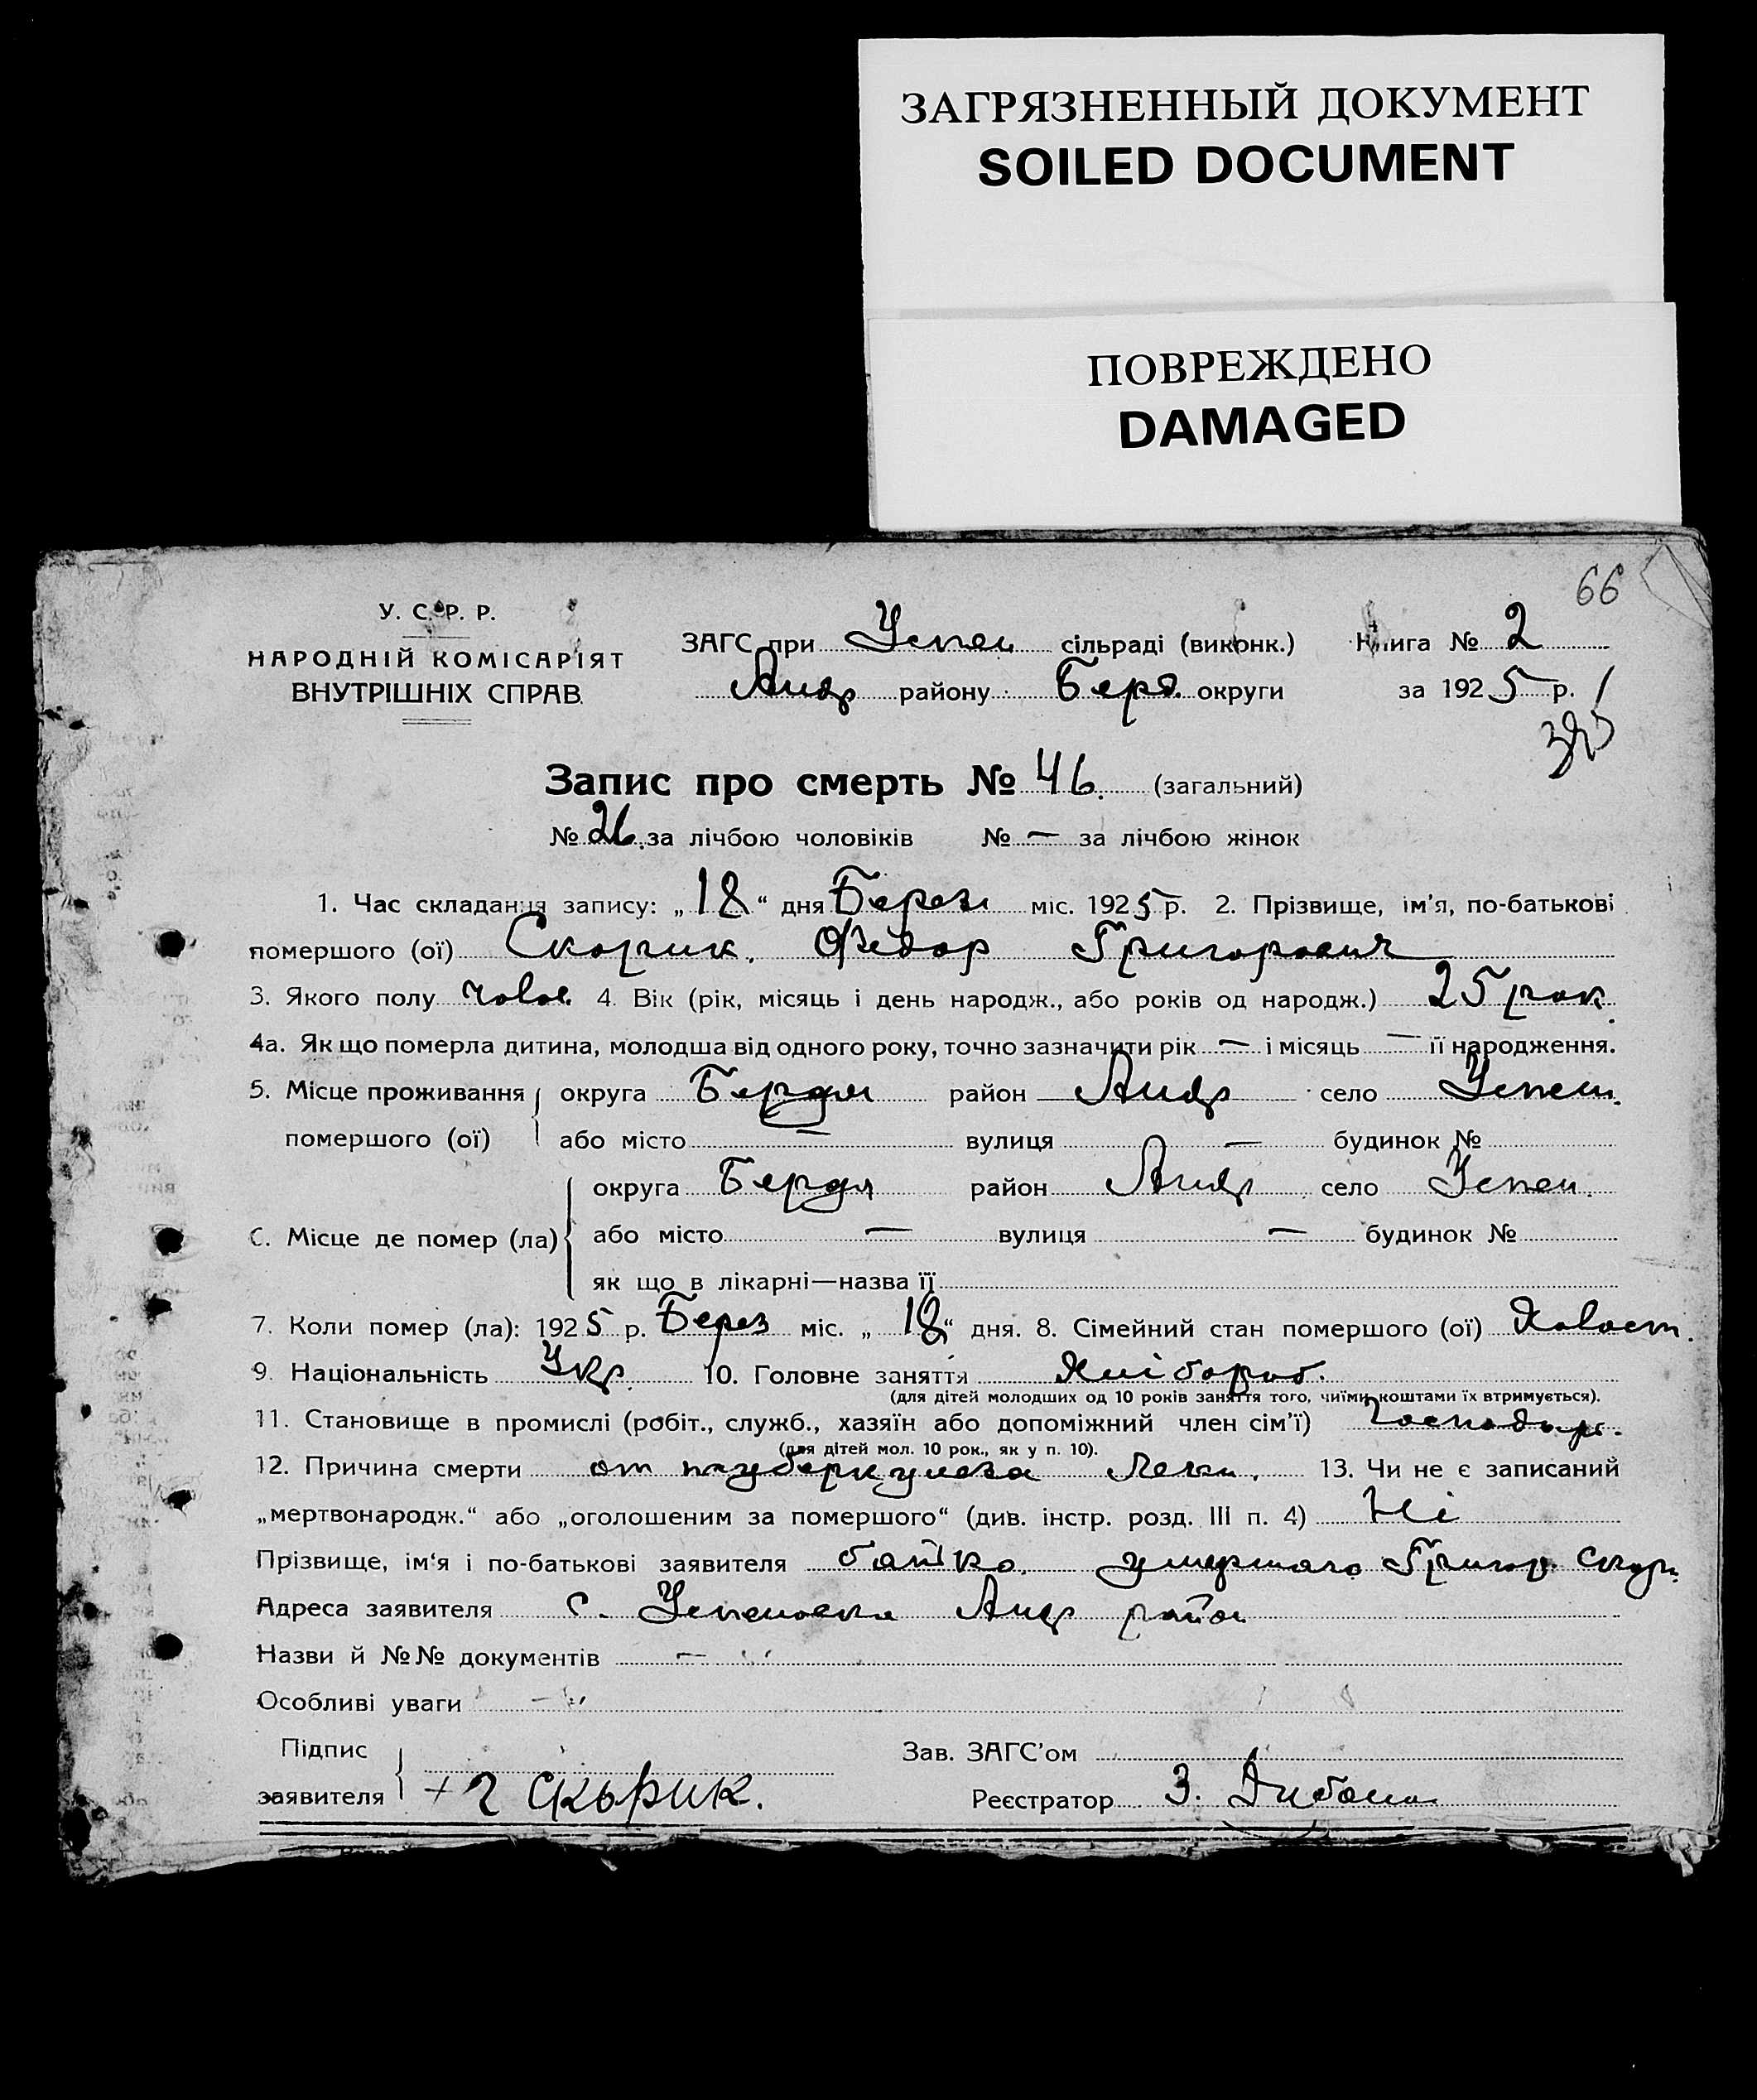 ЗАГРЯЗНЕННЫЙ ДОКУМЕНТ
SOILED DOCUMENT
ПОВРЕЖДЕНО
DAMAGED
66
У. С. Р. Р.
НАРОДНІЙ КОМІСАРІЯТ
ВНУТРІШНІХ СПРАВ
ЗАГС при Успен сільраді (виконк.) Книга № 2
Андр району Берд. округи за 1925 р.
Запис про смерть № 46. (загальний)
№ 26. за лічбою чоловіків № — за лічбою жінок
1. Час складання запису: „18“ дня Березн міс. 1925 р. 2. Прізвище, ім’я, по-батькові
помершого (ої) Скорик. Федор Григорович
3. Якого полу чолов. 4. Вік (рік, місяць і день народж., або років од народж.) 25 рок.
4а. Як що померла дитина, молодша від одного року, точно зазначити рік — і місяць — її народження.
5. Місце проживання округа Бердян район Андр село Успен.
помершого (ої) або місто — вулиця — будинок №
округа Бердя район Андр село Успен.
6. Місце де помер (ла) або місто — вулиця — будинок №
як що в лікарні—назва її
7. Коли помер (ла): 1925 р. Берез міс. „18“ дня. 8. Сімейний стан помершого (ої) Холост.
9. Національність Укр. 10. Головне заняття Хлібороб.
(для дітей молодших од 10 років заняття того, чиїми коштами їх втримується).
11. Становище в промислі (робіт., служб., хазяїн або допоміжний член сім’ї) Господар.
(для дітей мол. 10 рок., як у п. 10).
12. Причина смерти от туберкулеза Легки. 13. Чи не є записаний
„мертвонародж.“ або „оголошеним за помершого“ (див. інстр. розд. III п. 4) Ні
Прізвище, ім‘я і по-батькові заявителя батько. умершого Григор. Скори
Адреса заявителя с. Успеновка Андр район
Назви й №№ документів —
Особливі уваги —
Підпис
заявителя + Г Скорик.
Зав. ЗАГС’ом
Реєстратор З.